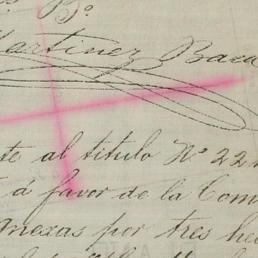 B.º
Martinez Baca
te al titulo Nº 22
á favor de la Com
nexas por tres hec